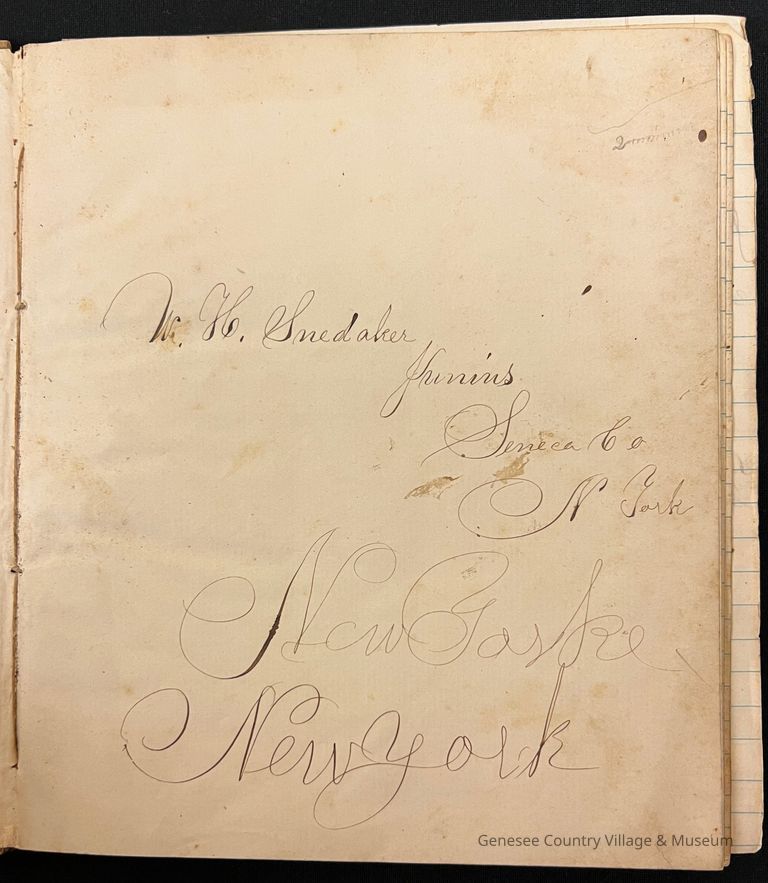 2
W. H. Snedaker
Junius
Seneca Co
N York
New Yorke
New York
Genesee Country Village & Museum